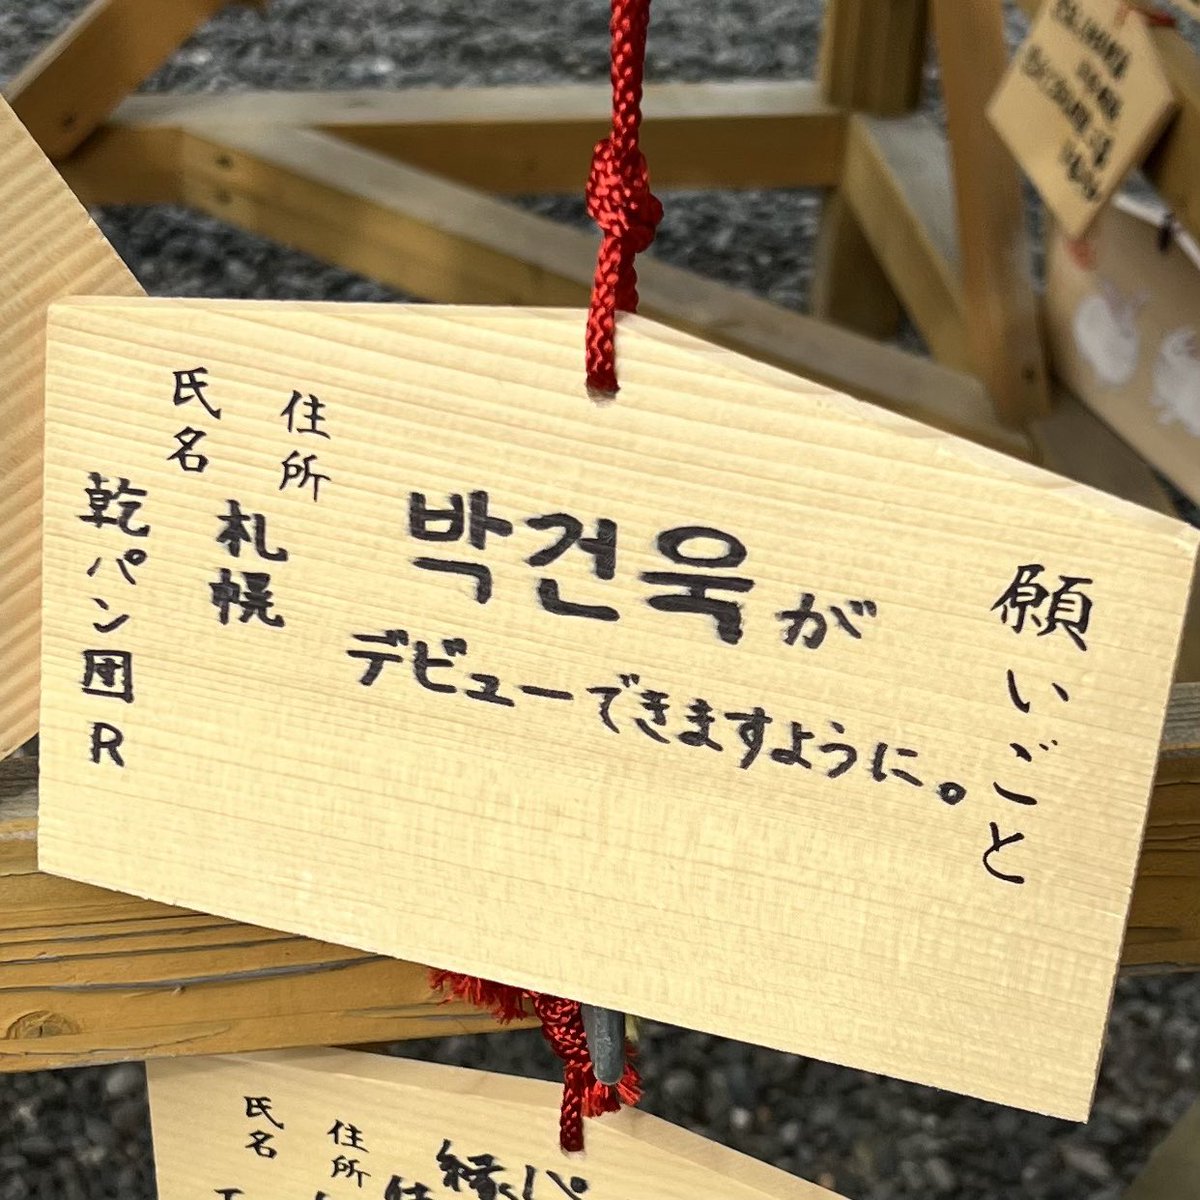 願いごと
박건욱が
デビューできますように。
住所
札幌
氏名
乾パン団R
氏名
住所